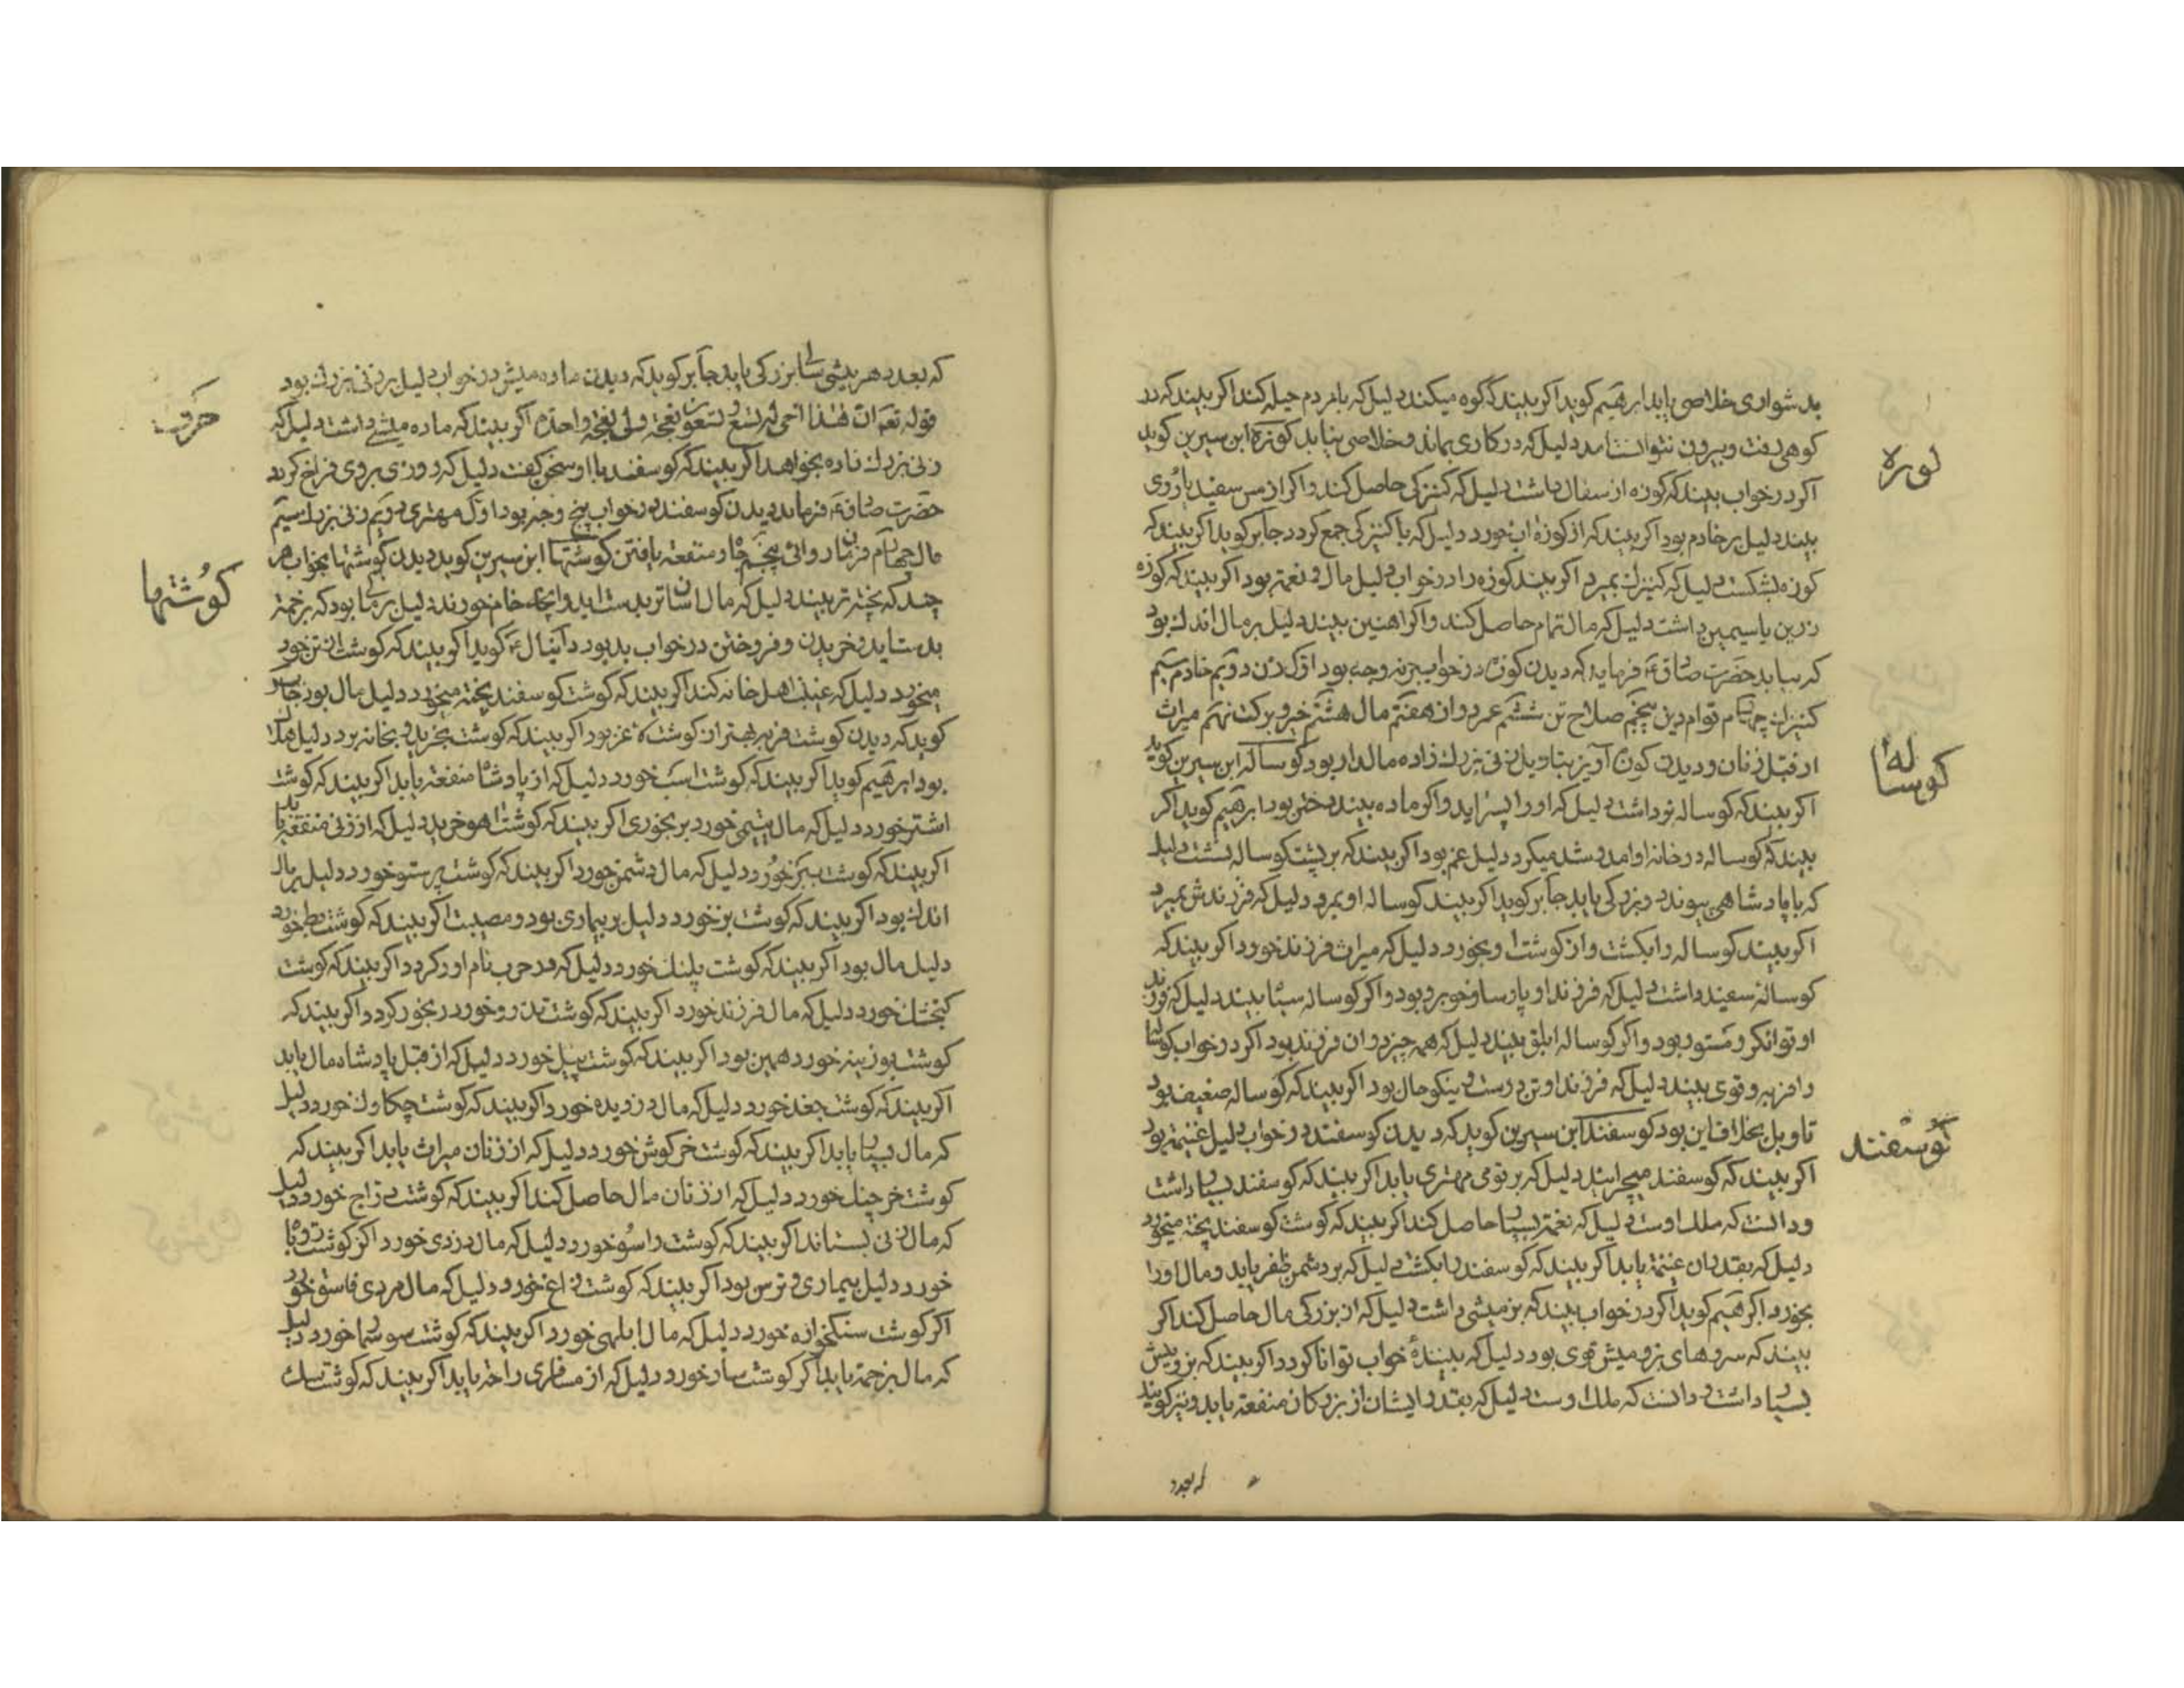 بدشواری خلاصی یابد ابرهیم کوید اکر بیند که کوه میکند دلیل که با مردم حیله کند اکر بیند که در
کوهی رفت و بیرون نتوانست آمد دلیل که در کاری بماند و خلاصی نیابد کوزه ابن سیرین کوید
کوزه
اکر در خواب بیند که کوزه از سفال داشت دلیل که کنیزکی حاصل کند و اکر از مس سفید یا روی
بیند دلیل بر خادم بود اکر بیند که از کوزه اب خورد دلیل که با کنیزکی جمع کردد جابر کوید اکر بیند که
کوزه بشکست دلیل که کنیزک بمیرد اکر بیند کوزه را در خواب دلیل مال و نعمة بود اکر بیند که کوزه
زرین یا سیمین داشت دلیل که مال تمام حاصل کند و اکر اهنین بیند دلیل بر مال اندک بود
که بیابد حضرت صادق ع فرماید که دیدن کوزه در خواب بر نه وجه بود اول زن دویم خادم سیم
کنیزک چهارم قوام دین پنجم صلاح تن ششم عمر دراز هفتم مال هشتم خیر و برکت نهم میراث
از قبل زنان و دیدن کوزه آویز بتاویل زنی بزرک زاده مالدار بود کوساله ابن سیرین کوید
کوساله
اکر بیند که کوساله نر داشت دلیل که او را پسر اید و اکر ماده بیند دختر بود ابرهیم کوید اکر
بیند که کوساله در خانه او امد و شد میکرد دلیل غم بود اکر بیند که بر پشت کوساله نشست دلیل
که با پادشاهی پیوندد و بزرکی یابد جابر کوید اکر بیند کوساله او بمرد دلیل که فرزندش بمیرد
اکر بیند کوساله را بکشت و از کوشت او بخورد دلیل که میراث فرزند خورد اکر بیند که
کوساله سفید داشت دلیل که فرزند او پارسا و خوبرو بود و اکر کوساله سیاه بیند دلیل که فرزند
او توانکر و مستور بود و اکر کوساله ابلق بیند دلیل که همه چیز در ان فرزند بود اکر در خواب کوساله
را فربه و قوی بیند دلیل که فرزند او تن درست و نیکو حال بود اکر بیند که کوساله ضعیف بود
تاویل بخلاف این بود کوسفند ابن سیرین کوید که دیدن کوسفند در خواب دلیل غنیمة بود
کوسفند
اکر بیند که کوسفند میچرانید دلیل که بر قومی مهتری یابد اکر بیند که کوسفند بسیار داشت
و دانست که ملک اوست دلیل که نعمة بسیار حاصل کند اکر بیند که کوشت کوسفند پخته میخورد
دلیل که بقدر ان غنیمة یابد اکر بیند که کوسفند را بکشت دلیل که بر دشمن ظفر یابد و مال او را
بخورد ابرهیم کوید اکر در خواب بیند که بز میشی داشت دلیل که از بزرکی مال حاصل کند اکر
بیند که سروهای بز و میش قوی بود دلیل که بینندهٔ خواب توانا کردد اکر بیند که بز و میش
بسیار داشت و دانست که ملک اوست دلیل که بقدر ایشان از بزرکان منفعة یابد و نیز کویند
که بعدد
که بعدد هر میشی سالی بزرکی یابد جابر کوید که دیدن ماده میش در خواب دلیل بر زنی بزرک بود
قوله تعم ان هذا اخی له تسع و تسعون نعجة ولی نعجة واحدة اکر بیند که ماده میشی داشت دلیل که
زنی بزرک زاده بخواهد اکر بیند که کوسفند با او سخن کفت دلیل که روزی بر وی فراخ کردد
حضرت صادق ع فرماید دیدن کوسفند در خواب پنج وجه بود اول مهتری دویم زنی بزرک سیم
مال چهارم فرمان روائی پنجم جاه و منفعة یافتن کوشتها ابن سیرین کوید دیدن کوشتها بخواب هر
کوشتها
چند که پخته تر بیند دلیل که مال اسانتر بدست اید و انچه خام خورند دلیل بر مالی بود که بزحمة
بدست اید و خریدن و فروختن در خواب بد بود دانیال ع کوید اکر بیند که کوشت از تن خود
میخورد دلیل که غیبت اهل خانه کند اکر بیند که کوشت کوسفند پخته میخورد دلیل مال بود جابر
کوید که دیدن کوشت فربه بهتر از کوشت لاغر بود اکر بیند که کوشت بخرید و بخانه برد دلیل
بود ابرهیم کوید اکر بیند که کوشت اسب خورد دلیل که از پادشاه منفعة یابد اکر بیند که کوشت
اشتر خورد دلیل که مال یتیمی خورد برنجوری اکر بیند که کوشت اهو خرید دلیل که از زنی منفعة یابد
اکر بیند که کوشت ببر خورد دلیل که مال دشمن خورد اکر بیند که کوشت پرستو خورد دلیل بر مال
اندک بود اکر بیند که کوشت بز خورد دلیل بر بیماری بود و مصیبت اکر بیند که کوشت بط خورد
دلیل مال بود اکر بیند که کوشت پلنک خورد دلیل که در حرب نام اور کردد اکر بیند که کوشت
کنجشک خورد دلیل که مال فرزند خورد اکر بیند که کوشت تذرو خورد رنجور کردد اکر بیند که
کوشت بوزینه خورد همین بود اکر بیند که کوشت پیل خورد دلیل که از قبل پادشاه مال یابد
اکر بیند که کوشت جغد خورد دلیل که مال دزدیده خورد اکر بیند که کوشت چکاوک خورد دلیل
که مال بسیار یابد اکر بیند که کوشت خرکوش خورد دلیل که از زنان میراث یابد اکر بیند که
کوشت خرچنک خورد دلیل که از زنان مال حاصل کند اکر بیند که کوشت دراج خورد دلیل
که مال زنی بستاند اکر بیند که کوشت راسو خورد دلیل که مال دزدی خورد اکر کوشت روباه
خورد دلیل بیماری و ترس بود اکر بیند که کوشت زاغ خورد دلیل که مال مردی فاسق خورد
اکر کوشت سنکخواره خورد دلیل که مال ابلهی خورد اکر بیند که کوشت سوسمار خورد دلیل
که مال بزحمة یابد اکر کوشت سار خورد دلیل که از مسافری راحة یابد اکر بیند که کوشت سک